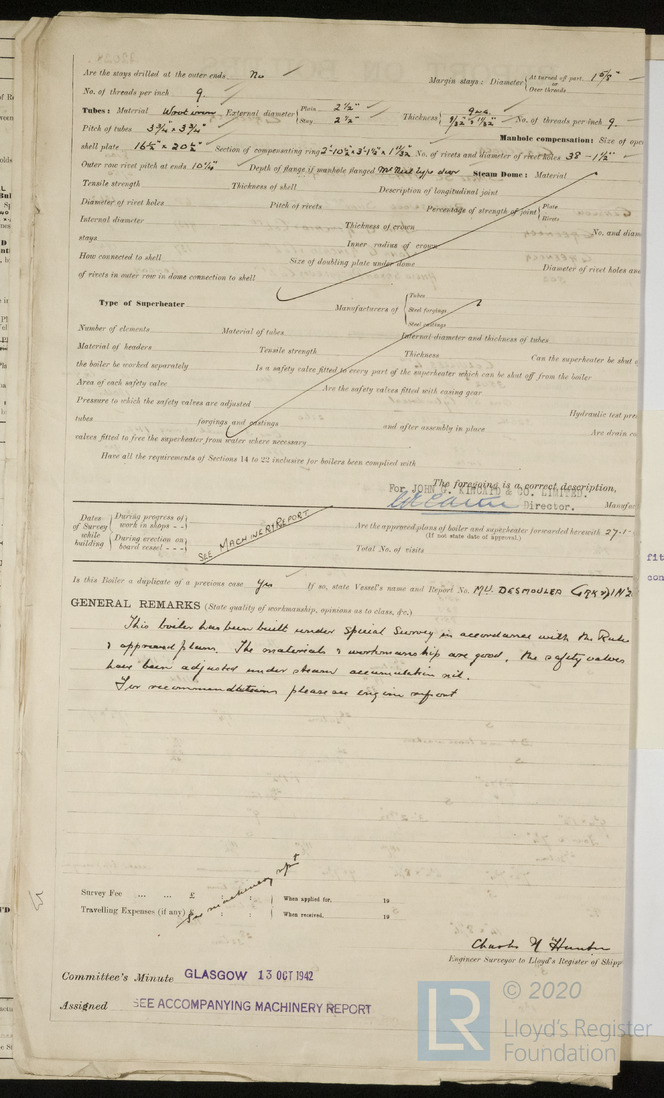 Are the stays drilled at the outer ends No Margin stays: Diameter { At turned off part, 1 5/8" or Over threads
No. of threads per inch 9.
Tubes: Material Wrot iron External diameter { Plain 2½" Stay 2½" Thickness { 9 WG. 9/32" & 11/32" No. of threads per inch 9
Pitch of tubes 3¾" x 3¾" Manhole compensation: Size of ope
shell plate 16½" x 20½" Section of compensating ring No. of rivets and diameter of rivet holes 38 - 1½"
Outer row rivet pitch at ends 10¼" Depth of flange if manhole flanged type door Steam Dome: Material
Tensile strength Thickness of shell Description of longitudinal joint
Diameter of rivet holes Pitch of rivets Percentage of strength of joint { Plate Rivets
Internal diameter Thickness of crown No. and diam
stays Inner radius of crown
How connected to shell Size of doubling plate under dome Diameter of rivet holes and
of rivets in outer row in dome connection to shell
Type of Superheater Manufacturers of { Tubes Steel forgings Steel castings
Number of elements Material of tubes Internal diameter and thickness of tubes
Material of headers Tensile strength Thickness Can the superheater be shut o
the boiler be worked separately Is a safety valve fitted to every part of the superheater which can be shut off from the boiler
Area of each safety valve Are the safety valves fitted with easing gear
Pressure to which the safety valves are adjusted Hydraulic test pre
tubes forgings and castings and after assembly in place Are drain co
valves fitted to free the superheater from water where necessary
Have all the requirements of Sections 14 to 22 inclusive for boilers been complied with
The foregoing is a correct description,
For JOHN G. KINCAID & CO. LIMITED.
Director. Manufac
Dates of Survey while building { During progress of work in shops - - During erection on board vessel - - -
SEE MACHINERY REPORT
Are the approved plans of boiler and superheater forwarded herewith 27-1-
(If not state date of approval.)
Total No. of visits
Is this Boiler a duplicate of a previous case Yes If so, state Vessel's name and Report No. M.V. DESMOULEA
GENERAL REMARKS (State quality of workmanship, opinions as to class, &c.)
This boiler has been built under Special Survey in accordance with the Rules
& approved plans. The materials & workmanship are good. The safety valves
have been adjusted under steam accumulation nil.
For recommendations please see engine report
See machinery rpt
Survey Fee ... ... £ : : When applied for, 19
Travelling Expenses (if any) £ : : When received, 19
Charles N Hunter
Engineer Surveyor to Lloyd's Register of Shipp
Committee's Minute GLASGOW 13 OCT 1942
Assigned SEE ACCOMPANYING MACHINERY REPORT
fit
con
LR © 2020
Lloyd's Register
Foundation